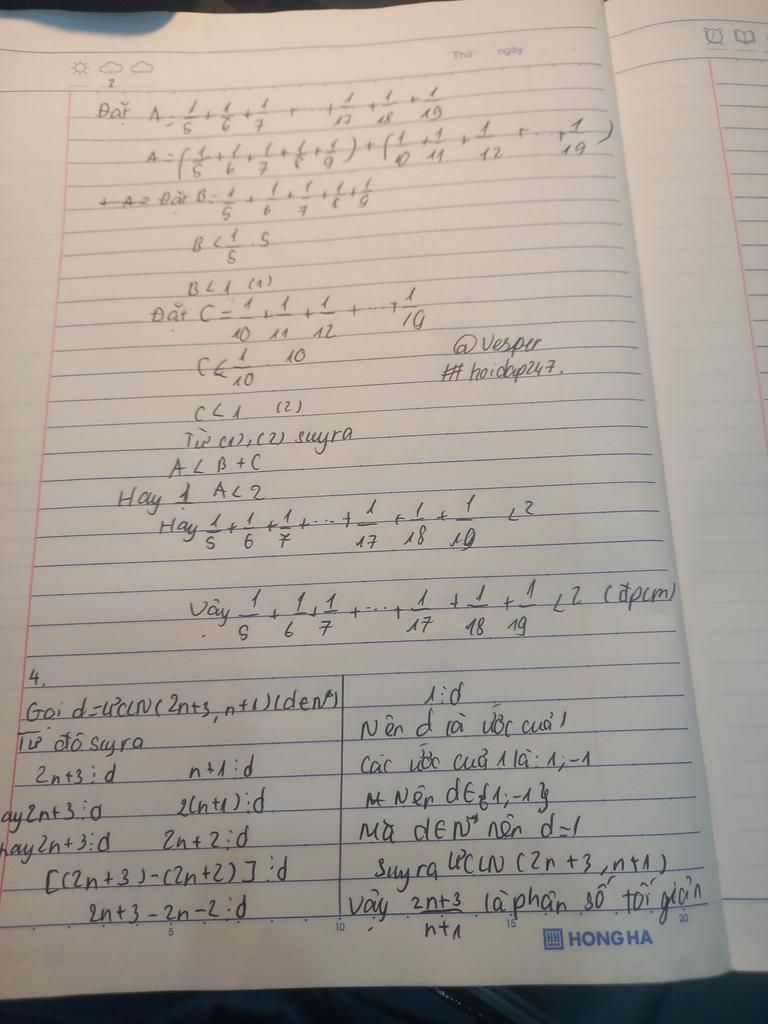 Thứ ngày
3
Đặt A = 1/5 + 1/6 + 1/7 + ... + 1/17 + 1/18 + 1/19
A = (1/5 + 1/6 + 1/7 + 1/8 + 1/9) + (1/10 + 1/11 + 1/12 + ... + 1/19)
Đặt B = 1/5 + 1/6 + 1/7 + 1/8 + 1/9
B < 1/5 . 5
B < 1 (1)
Đặt C = 1/10 + 1/11 + 1/12 + ... + 1/19
C < 1/10 . 10
@Vesper
#hoidap247.
C < 1 (2)
Từ (1), (2) suy ra
A < B + C
Hay A < 2
Hay 1/5 + 1/6 + 1/7 + ... + 1/17 + 1/18 + 1/19 < 2
Vậy 1/5 + 1/6 + 1/7 + ... + 1/17 + 1/18 + 1/19 < 2 (đpcm)
4.
Gọi d = ƯCLN (2n+3, n+1) (d ∈ N*)
Từ đó suy ra
2n+3 ⋮ d n+1 ⋮ d
ay 2n+3 ⋮ d 2(n+1) ⋮ d
hay 2n+3 ⋮ d 2n+2 ⋮ d
[(2n+3) - (2n+2)] ⋮ d
2n+3 - 2n - 2 ⋮ d
1 ⋮ d
Nên d là ước của 1
Các ước của 1 là: 1; -1
Nên d ∈ {1; -1}
Mà d ∈ N* nên d = 1
Suy ra ƯCLN (2n+3, n+1)
Vậy 2n+3/n+1 là phân số tối giản
5 10 15 20
HH HONG HA